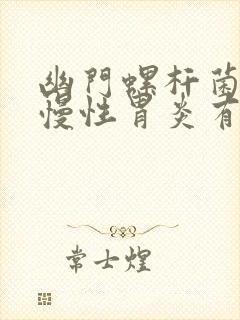 幽門螺杆菌
慢性胃炎有
常士煌